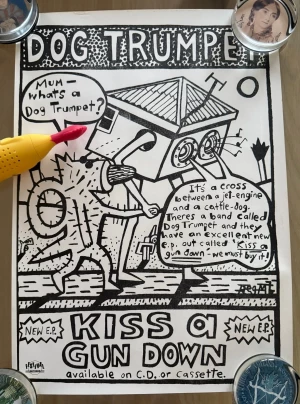 DOG TRUMPET
Mum –
what's a
Dog Trumpet?
It's a cross
between a jet-engine
and a cattle-dog.
Theres a band called
Dog Trumpet and they
have an excellent new
e.p. out called 'Kiss a
gun down' – we must buy it!
Reg Mt
NEW E.P.
KISS a
GUN DOWN
NEW E.P.
available on C.D. or Cassette.